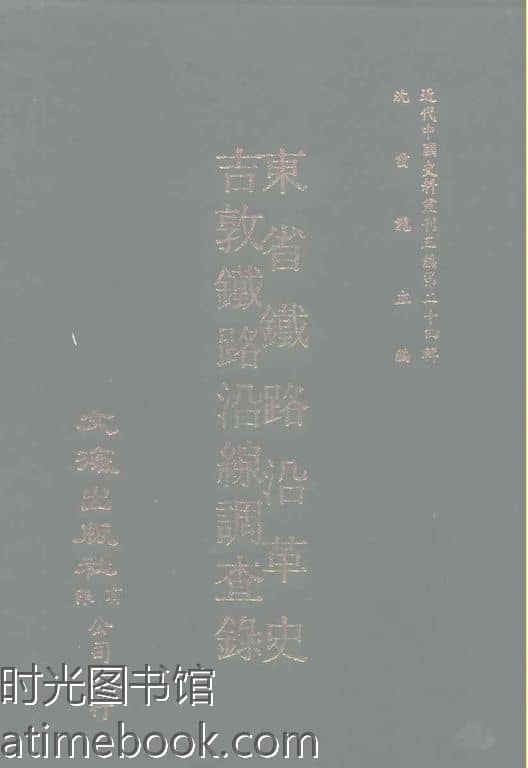 近代中國史料叢刊三編第二十四輯
沈雲龍主編
東省鐵路沿革史
吉敦鐵路沿線調查錄
文海出版社有限公司
时光图书馆
atimebook.com